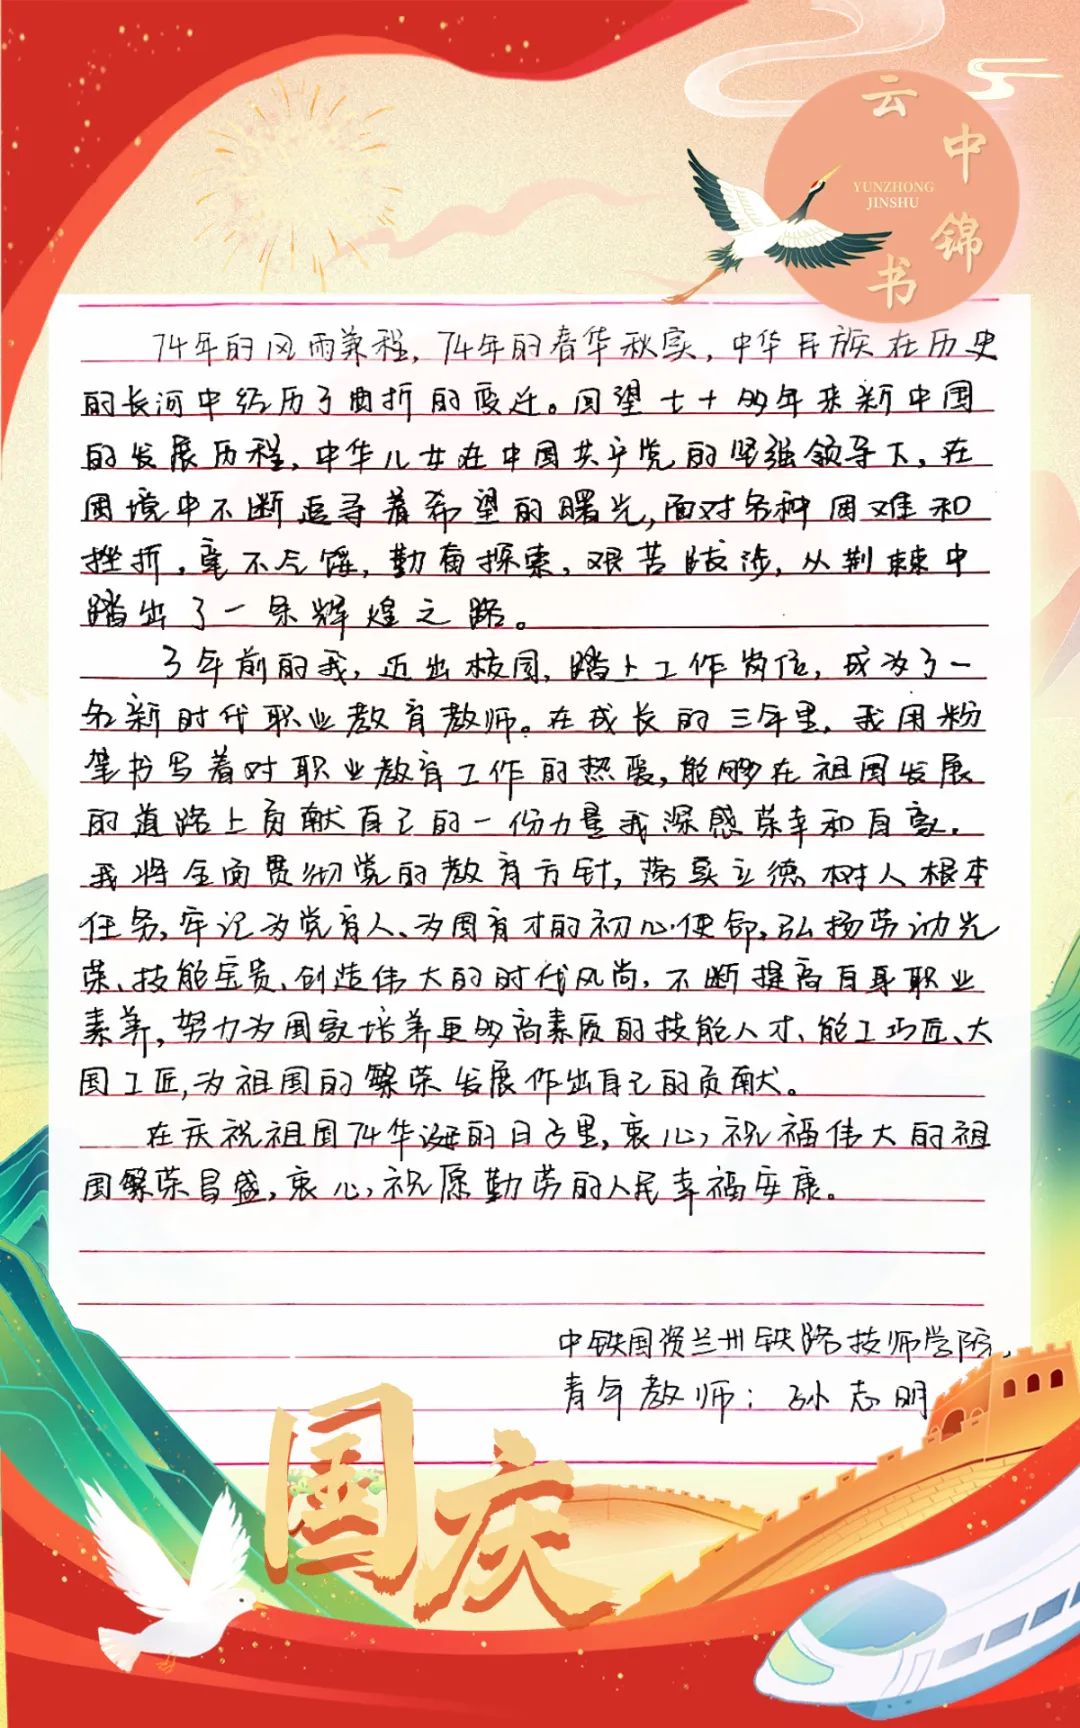 云中锦书
YUNZHONG
JINSHU
74年的风雨兼程，74年的春华秋实，中华民族在历史
的长河中经历了曲折的变迁。回望七十多年来新中国
的发展历程，中华儿女在中国共产党的坚强领导下，在
困境中不断追寻着希望的曙光，面对各种困难和
挫折，毫不气馁，勤奋探索，艰苦跋涉，从荆棘中
踏出了一条辉煌之路。
3年前的我，迈出校园，踏上工作岗位，成为了一
名新时代职业教育教师。在成长的三年里，我用粉
笔书写着对职业教育工作的热爱，能够在祖国发展
的道路上贡献自己的一份力量我深感荣幸和自豪。
我将全面贯彻党的教育方针，落实立德树人根本
任务，牢记为党育人、为国育才的初心使命，弘扬劳动光
荣、技能宝贵、创造伟大的时代风尚，不断提高自身职业
素养，努力为国家培养更多高素质的技能人才、能工巧匠、大
国工匠，为祖国的繁荣发展作出自己的贡献。
在庆祝祖国74华诞的日子里，衷心祝福伟大的祖
国繁荣昌盛，衷心祝愿勤劳的人民幸福安康。
中铁国资兰州铁路技师学院
青年教师：孙志明
国庆